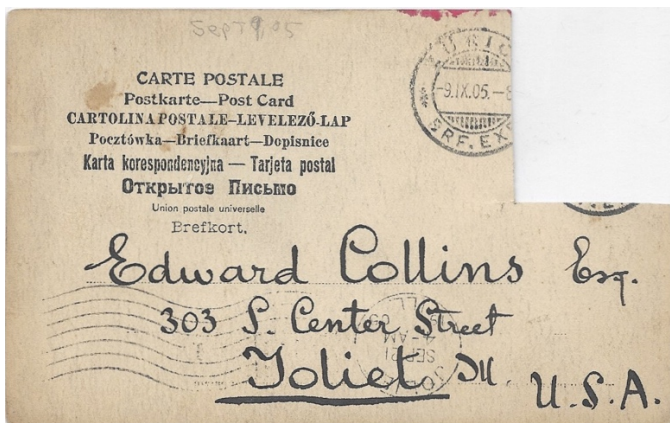 Sept 9 05
CARTE POSTALE
Postkarte—Post Card
CARTOLINA POSTALE–LEVELEZŐ-LAP
Pocztówka—Briefkaart—Dopisnice
Karta korespondencyjna — Tarjeta postal
Открытое Письмо
Union postale universelle
Brefkort.
-9.IX.05.-8
BRF. EXP
Edward Collins Esq.
303 S. Center Street
Joliet Ill.
U.S.A.
SEP 21
AM